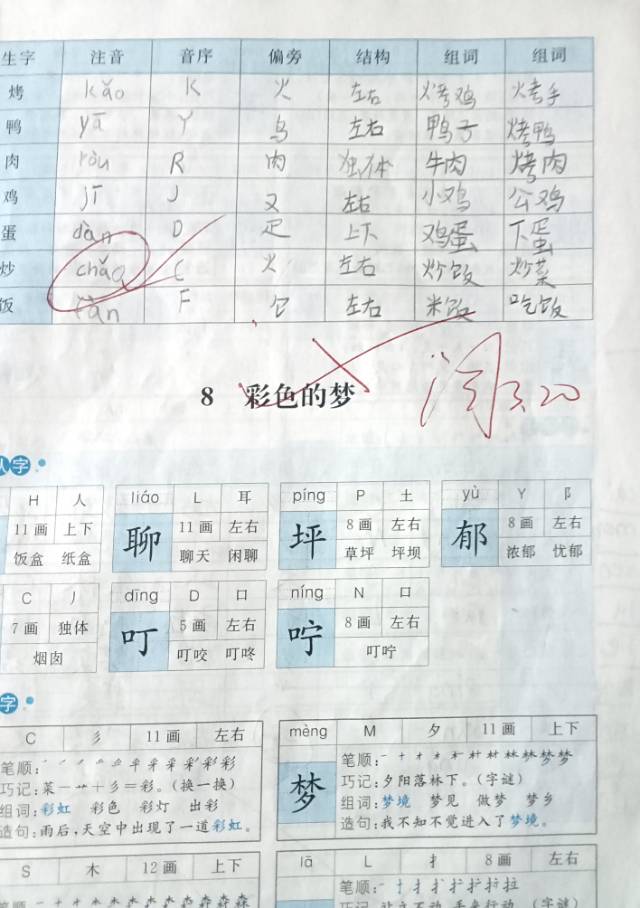 生字 注音 音序 偏旁 结构 组词 组词
烤 kǎo K 火 左右 烤鸡 烤手
鸭 yā Y 鸟 左右 鸭子 烤鸭
肉 ròu R 肉 独体 牛肉 烤肉
鸡 jī J 又 左右 小鸡 公鸡
蛋 dàn D 疋 上下 鸡蛋 下蛋
炒 chǎo C 火 左右 炒饭 炒菜
饭 fàn F 饣 左右 米饭 吃饭
8 彩色的梦
人字
H 人 liáo L 耳 píng P 土 yù Y 阝
11画 上下 聊 11画 左右 坪 8画 左右 郁 8画 左右
饭盒 纸盒 聊天 闲聊 草坪 坪坝 浓郁 忧郁
C 丿 dīng D 口 níng N 口
7画 独体 叮 5画 左右 咛 8画 左右
烟囱 叮咬 叮咚 叮咛
字
C 彡 11画 左右
笔顺:
巧记:菜-艹+彡=彩。(换一换)
组词:彩虹 彩色 彩灯 出彩
造句:雨后,天空中出现了一道彩虹。
mèng M 夕 11画 上下
梦
笔顺:
巧记:夕阳落林下。(字谜)
组词:梦境 梦见 做梦 梦乡
造句:我不知不觉进入了梦境。
S 木 12画 上下
lā L 扌 8画 左右
笔顺: